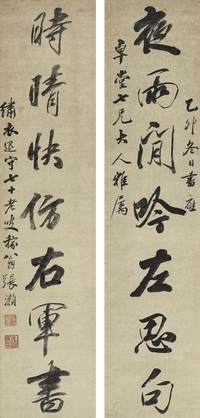 乙卯冬日書應
夜雨閒吟左思句
卓堂七兄大人雅屬
時晴快仿右軍書
繡衣退守七十老叟穆翁張瀕